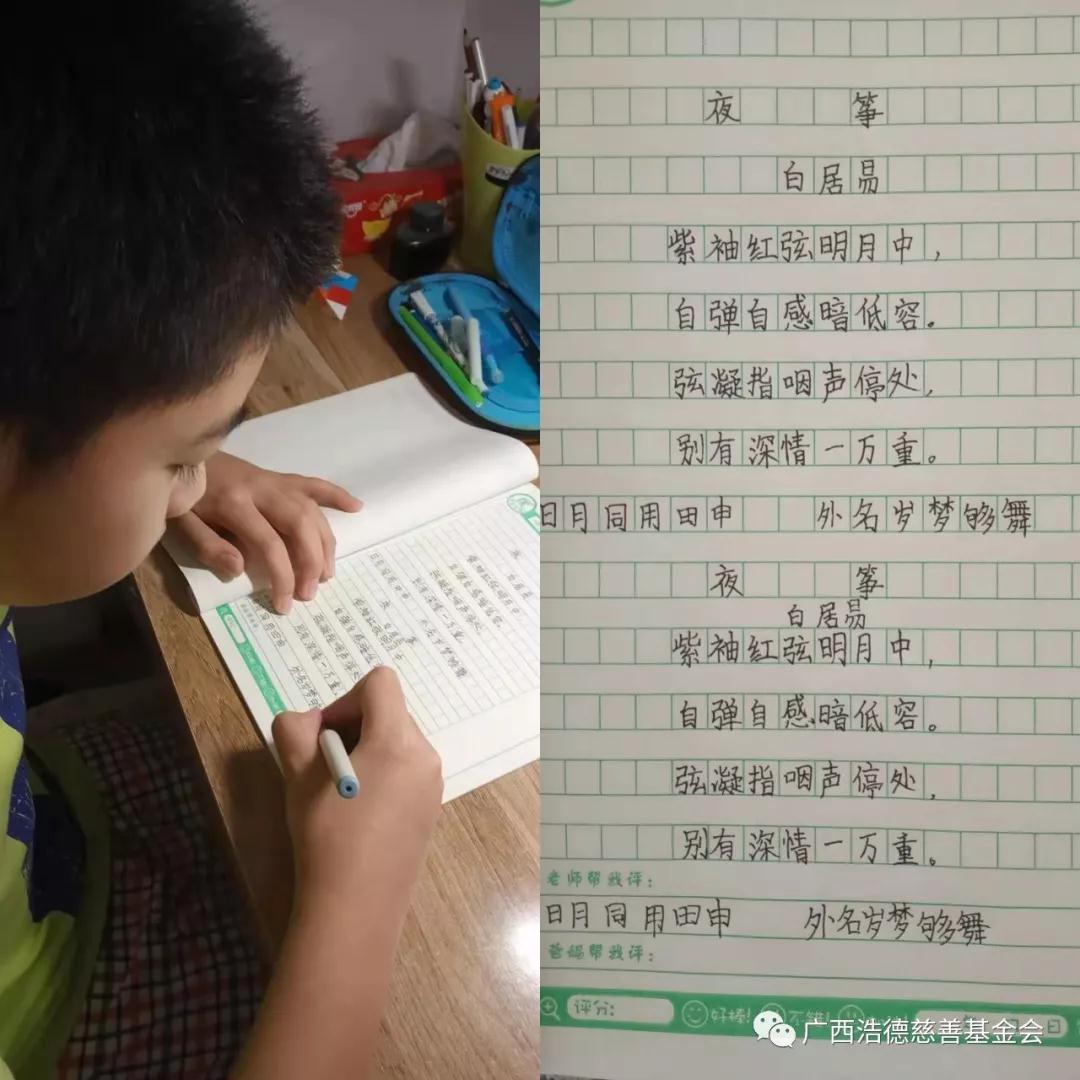 夜 筝
白居易
紫袖红弦明月中,
自弹自感暗低容。
弦凝指咽声停处,
别有深情一万重。
日月同用田申 外名岁梦够舞
夜 筝
白居易
紫袖红弦明月中,
自弹自感暗低容。
弦凝指咽声停处,
别有深情一万重。
老师帮我评:
日月同用田申 外名岁梦够舞
爸妈帮我评:
评分: 好棒! 不错!
日
广西浩德慈善基金会